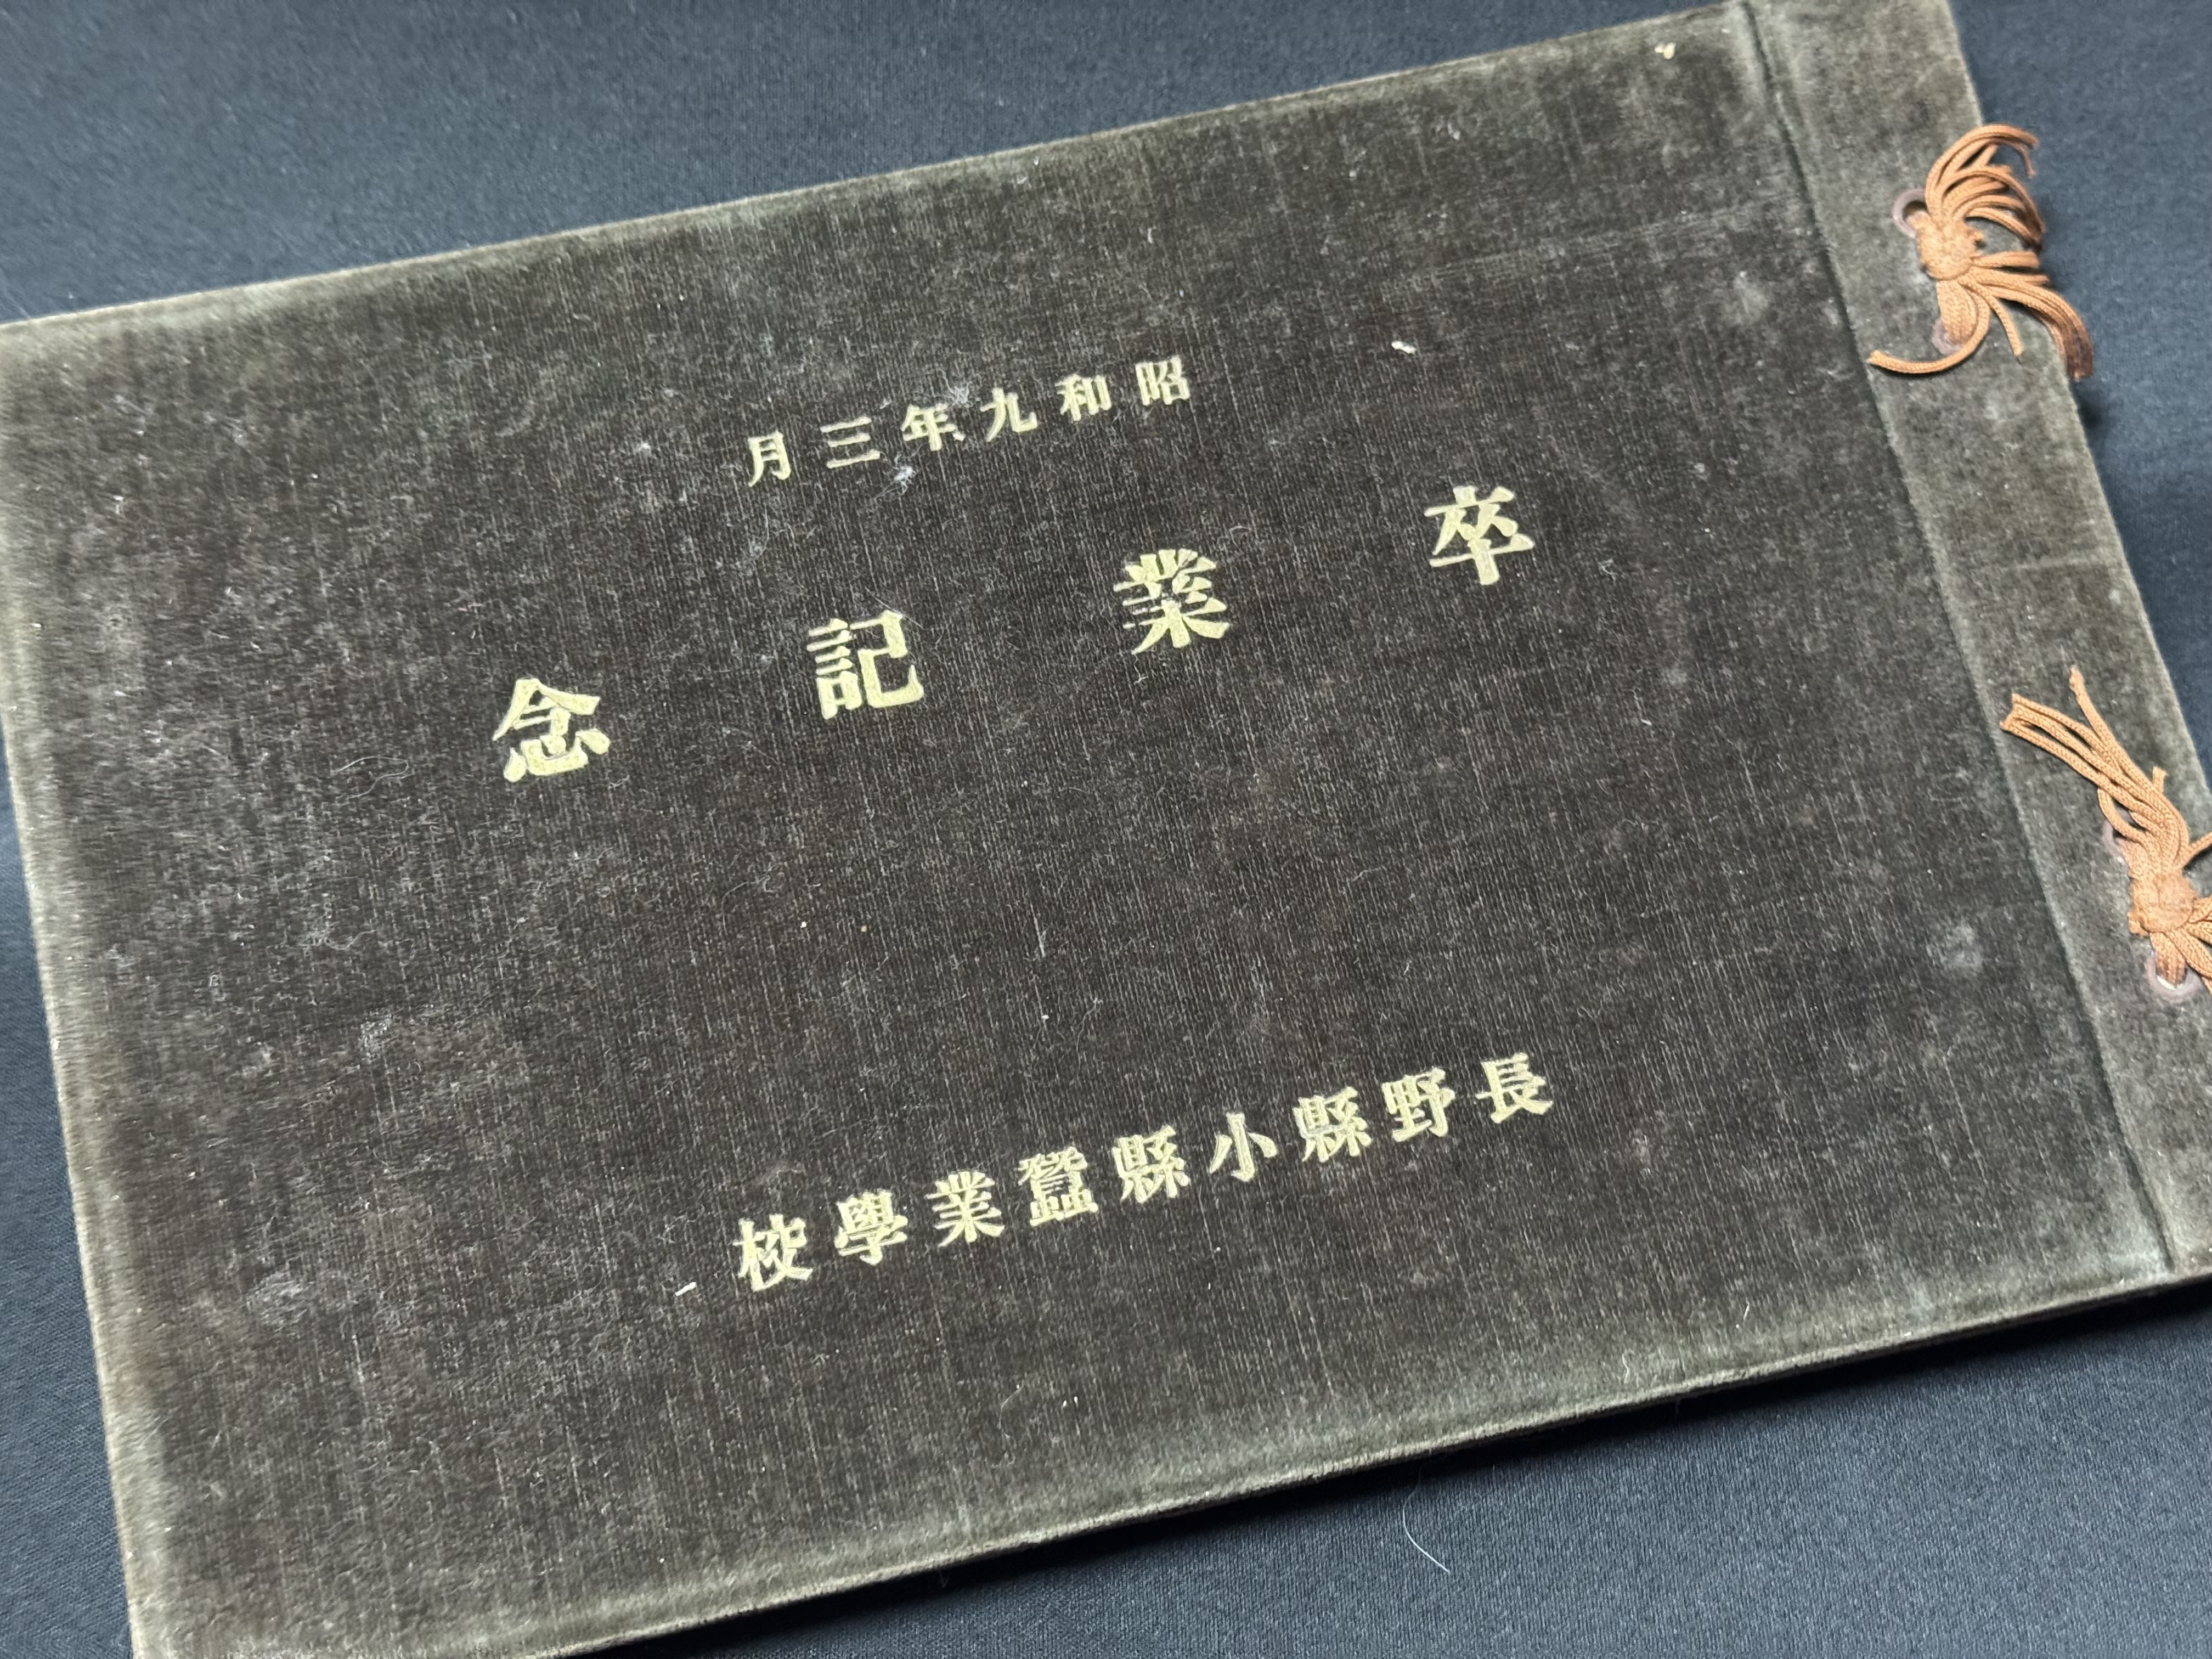 昭和九年三月
卒業記念
長野縣小縣蠶業學校